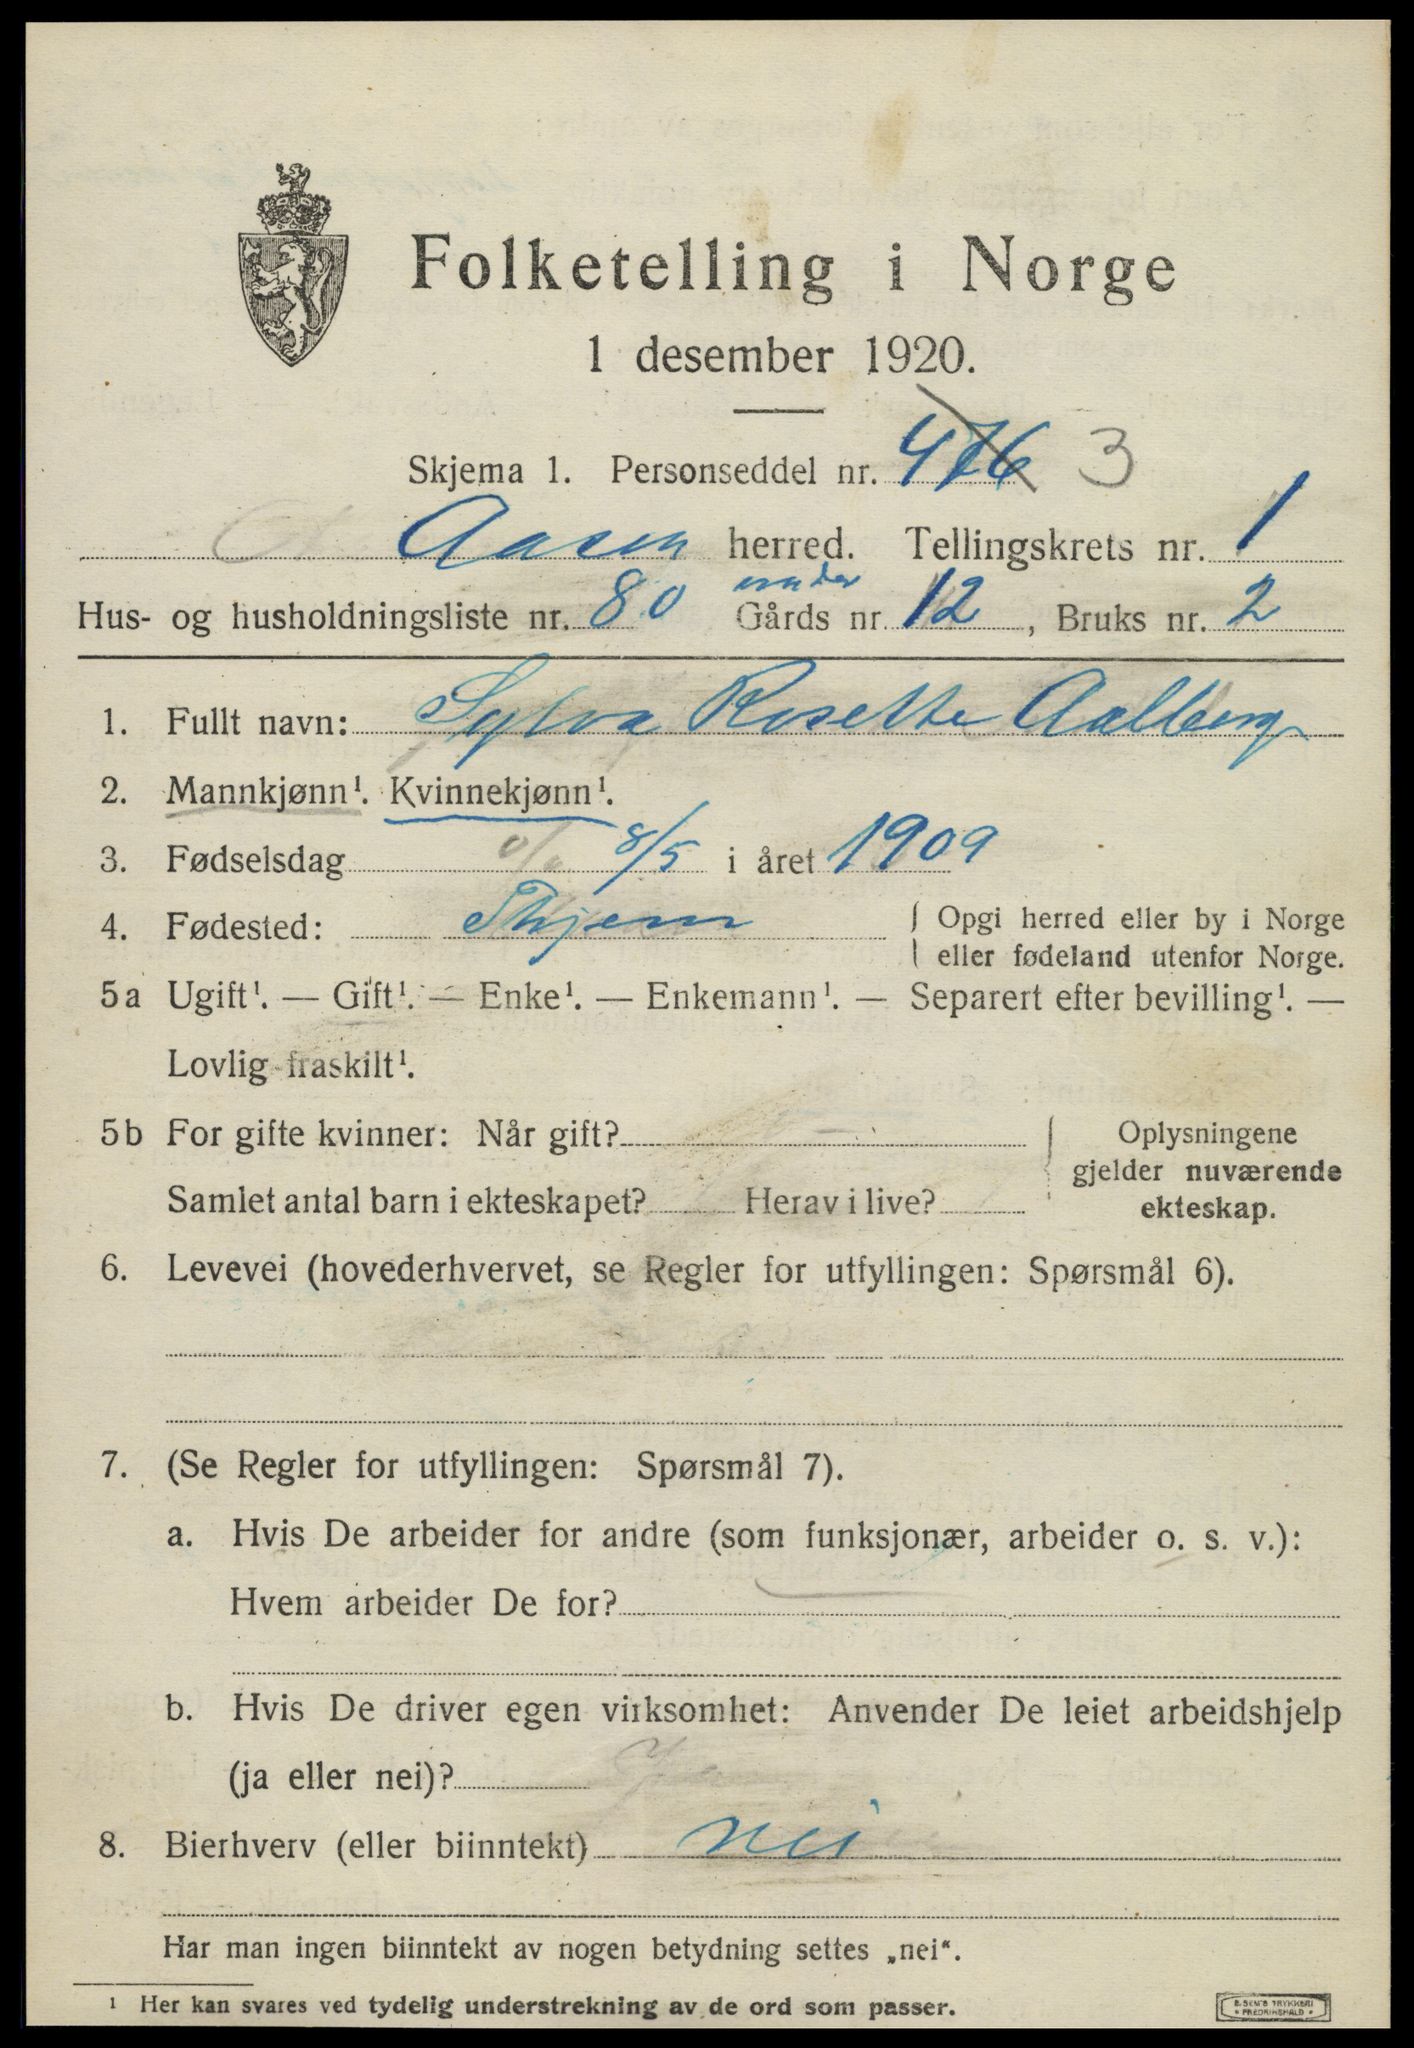 Folketelling i Norge
1 desember 1920.
Skjema 1. Personseddel nr. 476 3
Aasen herred. Tellingskrets nr. 1
under
Hus- og husholdningsliste nr. 80 Gårds nr. 12, Bruks nr. 2
1. Fullt navn: Sylva Rosette Aalberg
2. Mannkjønn¹. Kvinnekjønn¹.
3. Fødselsdag 8/5 i året 1909
4. Fødested: Thjem { Opgi herred eller by i Norge
eller fødeland utenfor Norge.
5a Ugift¹. — Gift¹. — Enke¹. — Enkemann¹. — Separert efter bevilling¹. —
Lovlig fraskilt¹.
5b For gifte kvinner: Når gift? { Oplysningene
gjelder nuværende
Samlet antal barn i ekteskapet? Herav i live? ekteskap.
6. Levevei (hovederhvervet, se Regler for utfyllingen: Spørsmål 6).
7. (Se Regler for utfyllingen: Spørsmål 7).
a. Hvis De arbeider for andre (som funksjonær, arbeider o. s. v.):
Hvem arbeider De for?
b. Hvis De driver egen virksomhet: Anvender De leiet arbeidshjelp
(ja eller nei)?
8. Bierhverv (eller biinntekt) nei
Har man ingen biinntekt av nogen betydning settes „nei“.
¹ Her kan svares ved tydelig understrekning av de ord som passer.
E. SEM'S TRYKKERI
• FREDRIKSHALD •